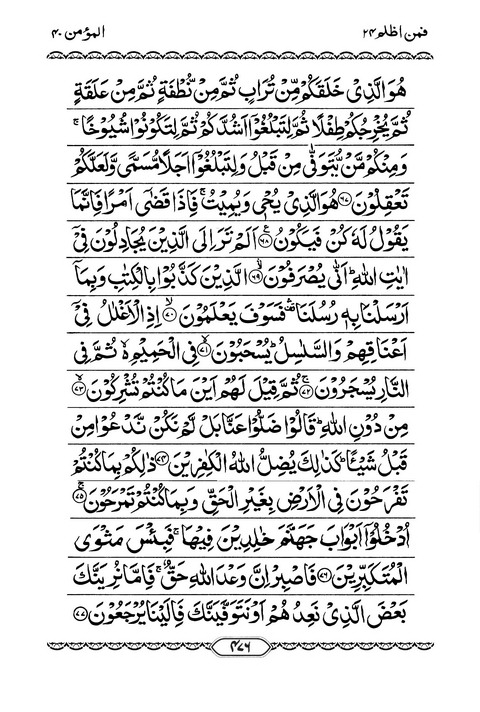 فمن اظلم ٢٤
المؤمن ٤٠
هُوَ الَّذِىْ خَلَقَكُمْ مِّنْ تُرَابٍ ثُمَّ مِنْ نُّطْفَةٍ ثُمَّ مِنْ عَلَقَةٍ
ثُمَّ يُخْرِجُكُمْ طِفْلًا ثُمَّ لِتَبْلُغُوْۤا اَشُدَّكُمْ ثُمَّ لِتَكُوْنُوْا شُيُوْخًا ۚ
وَمِنْكُمْ مَّنْ يُّتَوَفّٰى مِنْ قَبْلُ وَلِتَبْلُغُوْۤا اَجَلًا مُّسَمًّى وَّلَعَلَّكُمْ
تَعْقِلُوْنَ ﴿٦٧﴾ هُوَ الَّذِىْ يُحْىٖ وَيُمِيْتُ ۚ فَاِذَا قَضٰۤى اَمْرًا فَاِنَّمَا
يَقُوْلُ لَهٗ كُنْ فَيَكُوْنُ ﴿٦٨﴾ اَلَمْ تَرَ اِلَى الَّذِيْنَ يُجَادِلُوْنَ فِىْۤ
اٰيٰتِ اللّٰهِ ؕ اَنّٰى يُصْرَفُوْنَ ﴿٦٩﴾ الَّذِيْنَ كَذَّبُوْا بِالْكِتٰبِ وَبِمَاۤ
اَرْسَلْنَا بِهٖ رُسُلَنَا ۛ فَسَوْفَ يَعْلَمُوْنَ ﴿٧٠﴾ اِذِ الْاَغْلٰلُ فِىْۤ
اَعْنَاقِهِمْ وَالسَّلٰسِلُ ؕ يُسْحَبُوْنَ ﴿٧١﴾ فِى الْحَمِيْمِ ۙ ثُمَّ فِى
النَّارِ يُسْجَرُوْنَ ﴿٧٢﴾ ثُمَّ قِيْلَ لَهُمْ اَيْنَ مَا كُنْتُمْ تُشْرِكُوْنَ ﴿٧٣﴾
مِنْ دُوْنِ اللّٰهِ ؕ قَالُوْا ضَلُّوْا عَنَّا بَلْ لَّمْ نَكُنْ نَّدْعُوْا مِنْ
قَبْلُ شَيْـًٔا ؕ كَذٰلِكَ يُضِلُّ اللّٰهُ الْكٰفِرِيْنَ ﴿٧٤﴾ ذٰلِكُمْ بِمَا كُنْتُمْ
تَفْرَحُوْنَ فِى الْاَرْضِ بِغَيْرِ الْحَقِّ وَبِمَا كُنْتُمْ تَمْرَحُوْنَ ﴿٧٥﴾
اُدْخُلُوْۤا اَبْوَابَ جَهَنَّمَ خٰلِدِيْنَ فِيْهَا ۚ فَبِئْسَ مَثْوَى
الْمُتَكَبِّرِيْنَ ﴿٧٦﴾ فَاصْبِرْ اِنَّ وَعْدَ اللّٰهِ حَقٌّ ۚ فَاِمَّا نُرِيَنَّكَ
بَعْضَ الَّذِىْ نَعِدُهُمْ اَوْ نَتَوَفَّيَنَّكَ فَاِلَيْنَا يُرْجَعُوْنَ ﴿٧٧﴾
٤٧٦